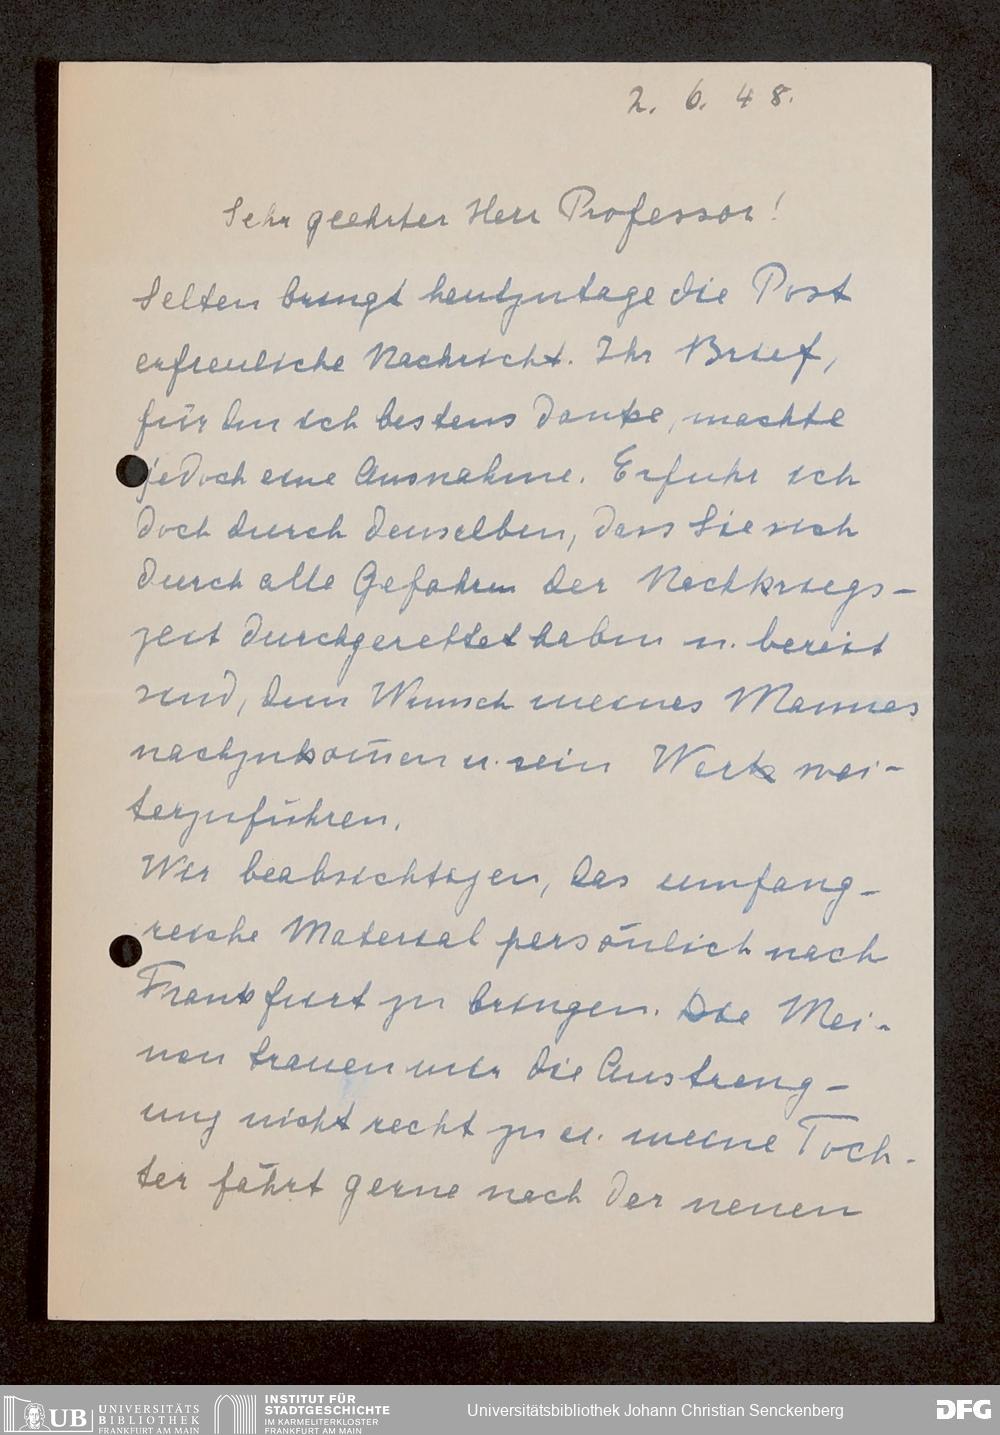 2. 6. 48.
Sehr geehrter Herr Professor!
Selten bringt heutzutage die Post
erfreuliche Nachricht. Ihr Brief,
für den ich bestens danke, machte
jedoch eine Ausnahme. Erfuhr ich
doch durch denselben, dass Sie sich
durch alle Gefahren der Nachkriegs-
zeit durchgerettet haben u. bereit
sind, dem Wunsch meines Mannes
nachzukom̅en u. sein Werk wei-
terzuführen.
Wir beabsichtigen, das umfang-
reiche Material persönlich nach
Frankfurt zu bringen. Die Mei-
nen trauen mir die Anstreng-
ung nicht recht zu u. meine Toch-
ter fährt gerne nach der neuen
UB UNIVERSITÄTS
BIBLIOTHEK
FRANKFURT AM MAIN
INSTITUT FÜR
STADTGESCHICHTE
IM KARMELITERKLOSTER
FRANKFURT AM MAIN
Universitätsbibliothek Johann Christian Senckenberg
DFG